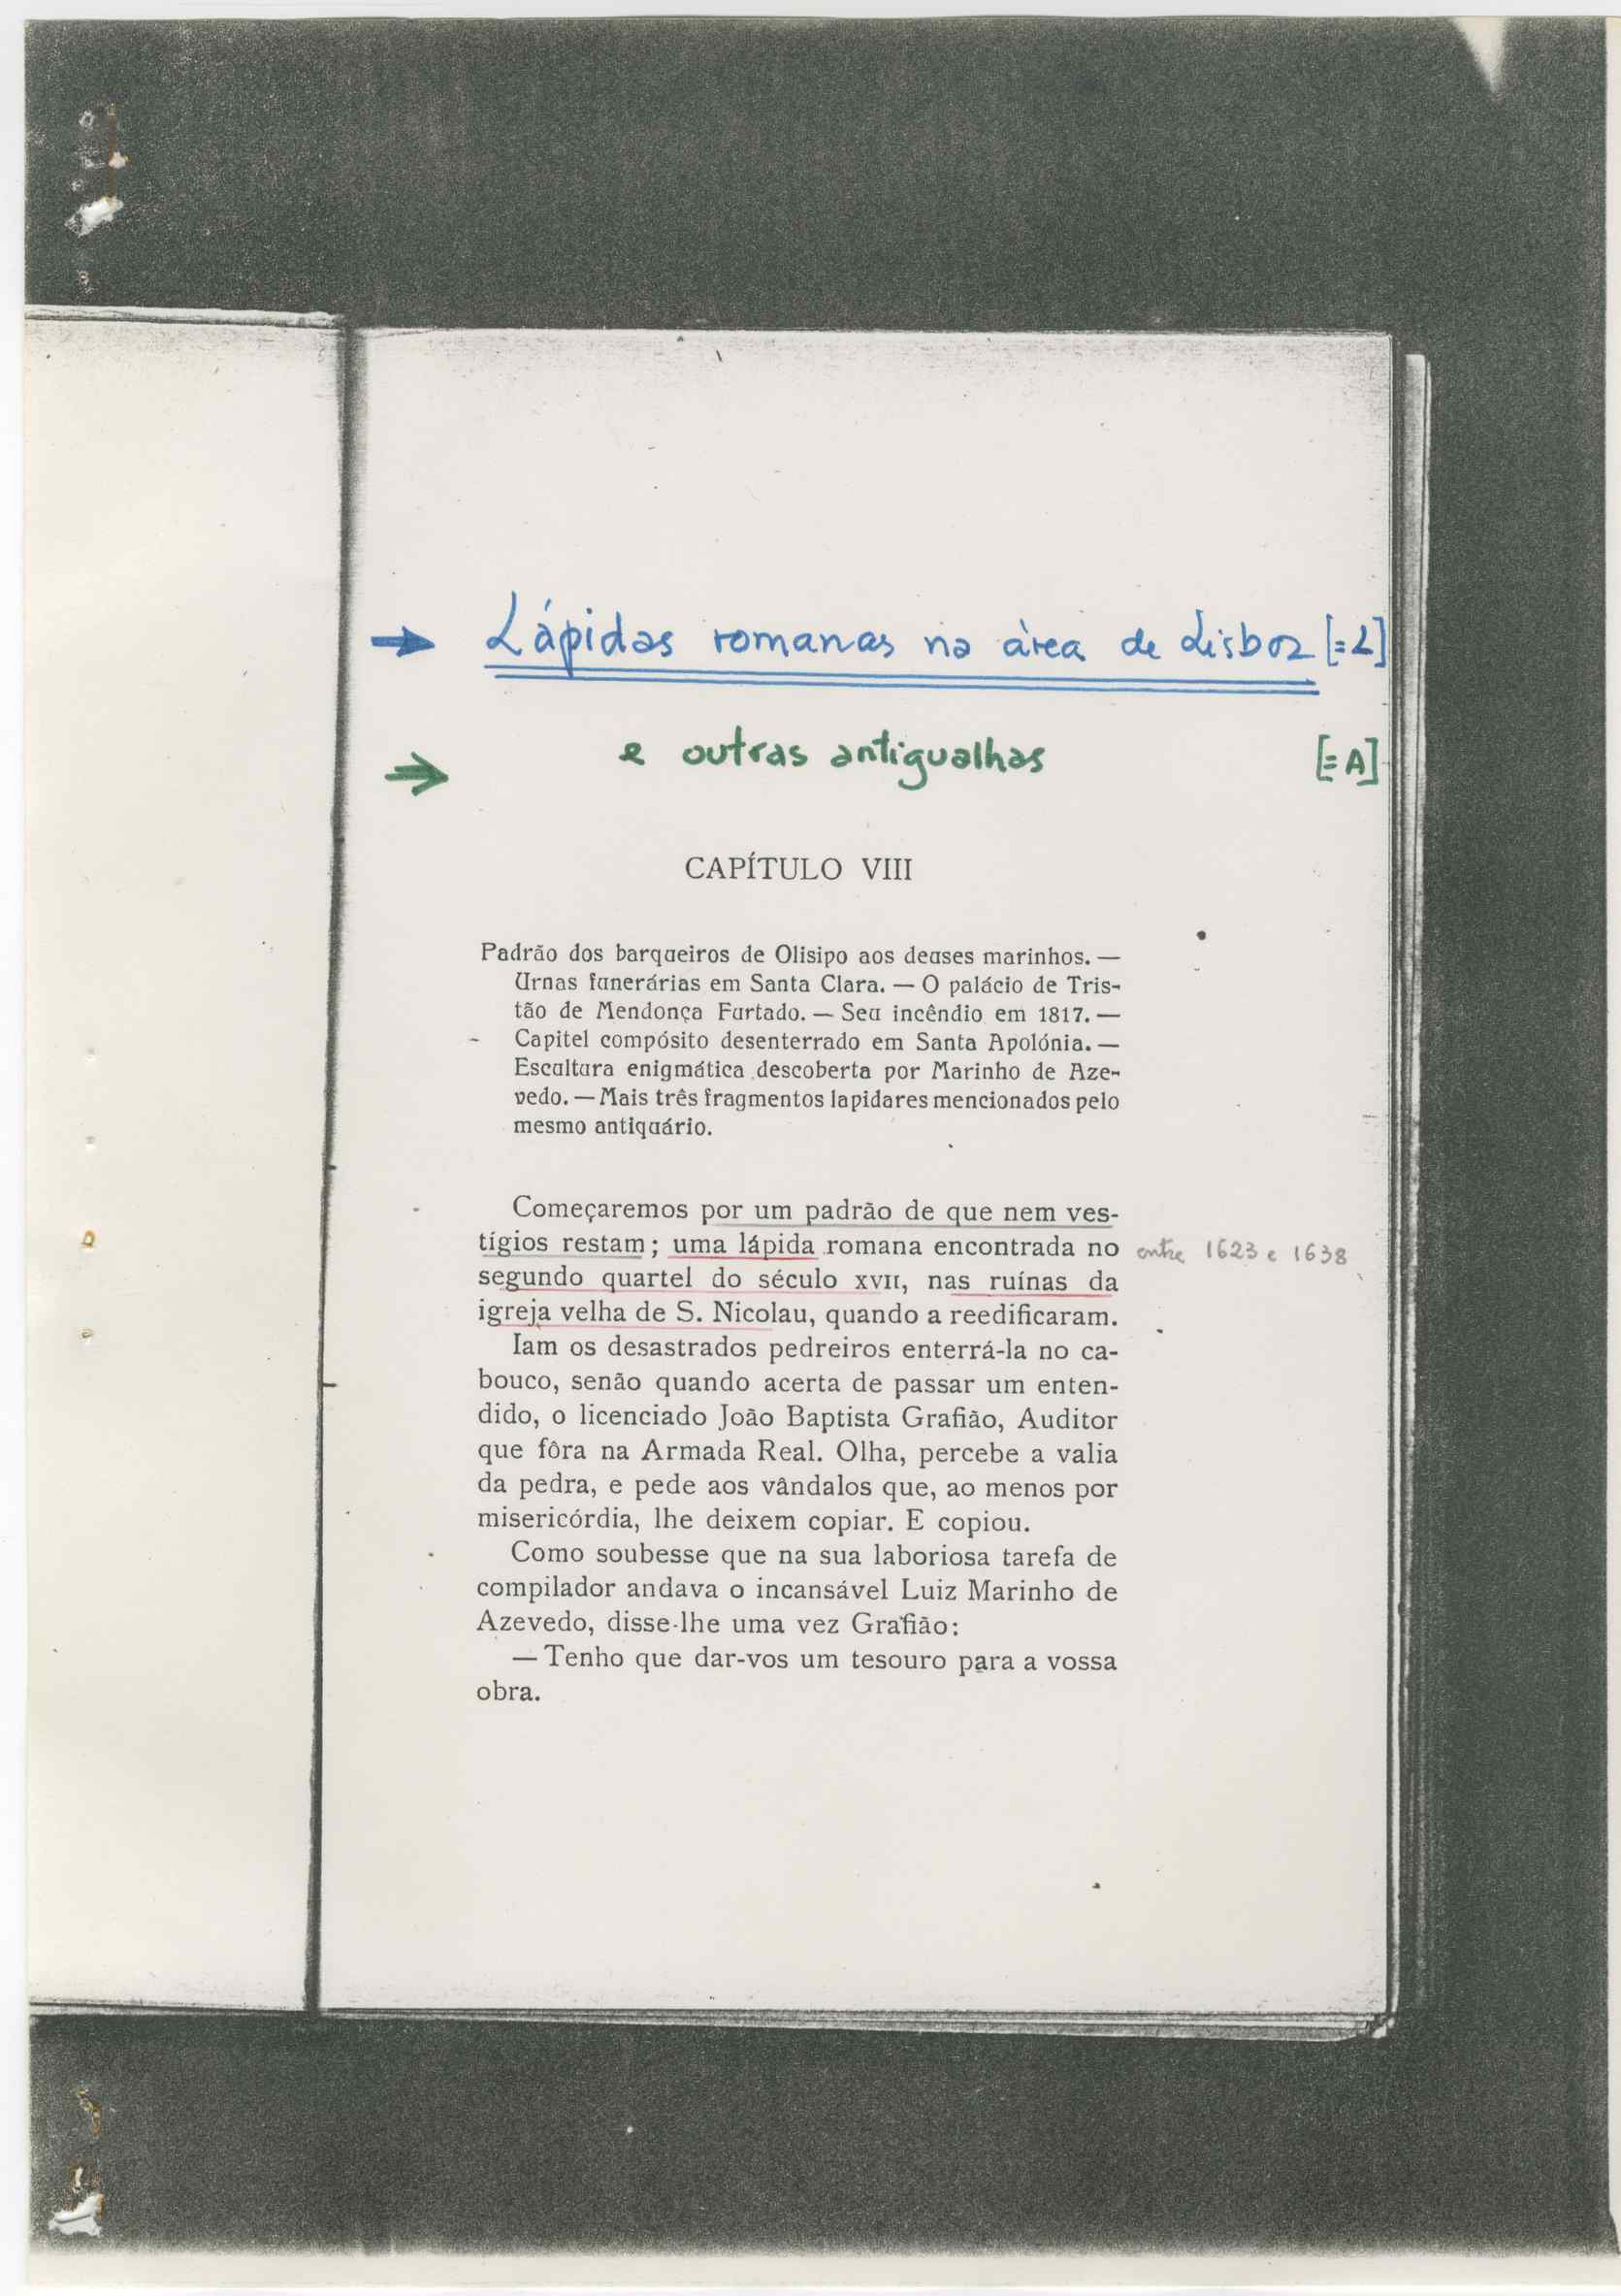 → Lápidas romanas na área de Lisboa [=L]
→ e outras antigualhas [=A]
CAPÍTULO VIII
Padrão dos barqueiros de Olisipo aos deuses marinhos. —
Urnas funerárias em Santa Clara. — O palácio de Tris-
tão de Mendonça Furtado. — Seu incêndio em 1817. —
Capitel compósito desenterrado em Santa Apolónia. —
Escultura enigmática descoberta por Marinho de Aze-
vedo. — Mais três fragmentos lapidares mencionados pelo
mesmo antiquário.
Começaremos por um padrão de que nem ves-
tígios restam; uma lápida romana encontrada no entre 1623 e 1638
segundo quartel do século XVII, nas ruínas da
igreja velha de S. Nicolau, quando a reedificaram.
Iam os desastrados pedreiros enterrá-la no ca-
bouco, senão quando acerta de passar um enten-
dido, o licenciado João Baptista Grafião, Auditor
que fôra na Armada Real. Olha, percebe a valia
da pedra, e pede aos vândalos que, ao menos por
misericórdia, lhe deixem copiar. E copiou.
Como soubesse que na sua laboriosa tarefa de
compilador andava o incansável Luiz Marinho de
Azevedo, disse-lhe uma vez Grafião:
— Tenho que dar-vos um tesouro para a vossa
obra.